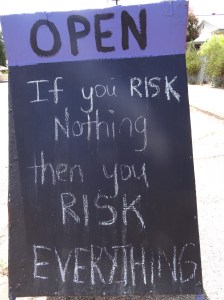 OPEN
If you RISK
Nothing
then you
RISK
EVERYTHING